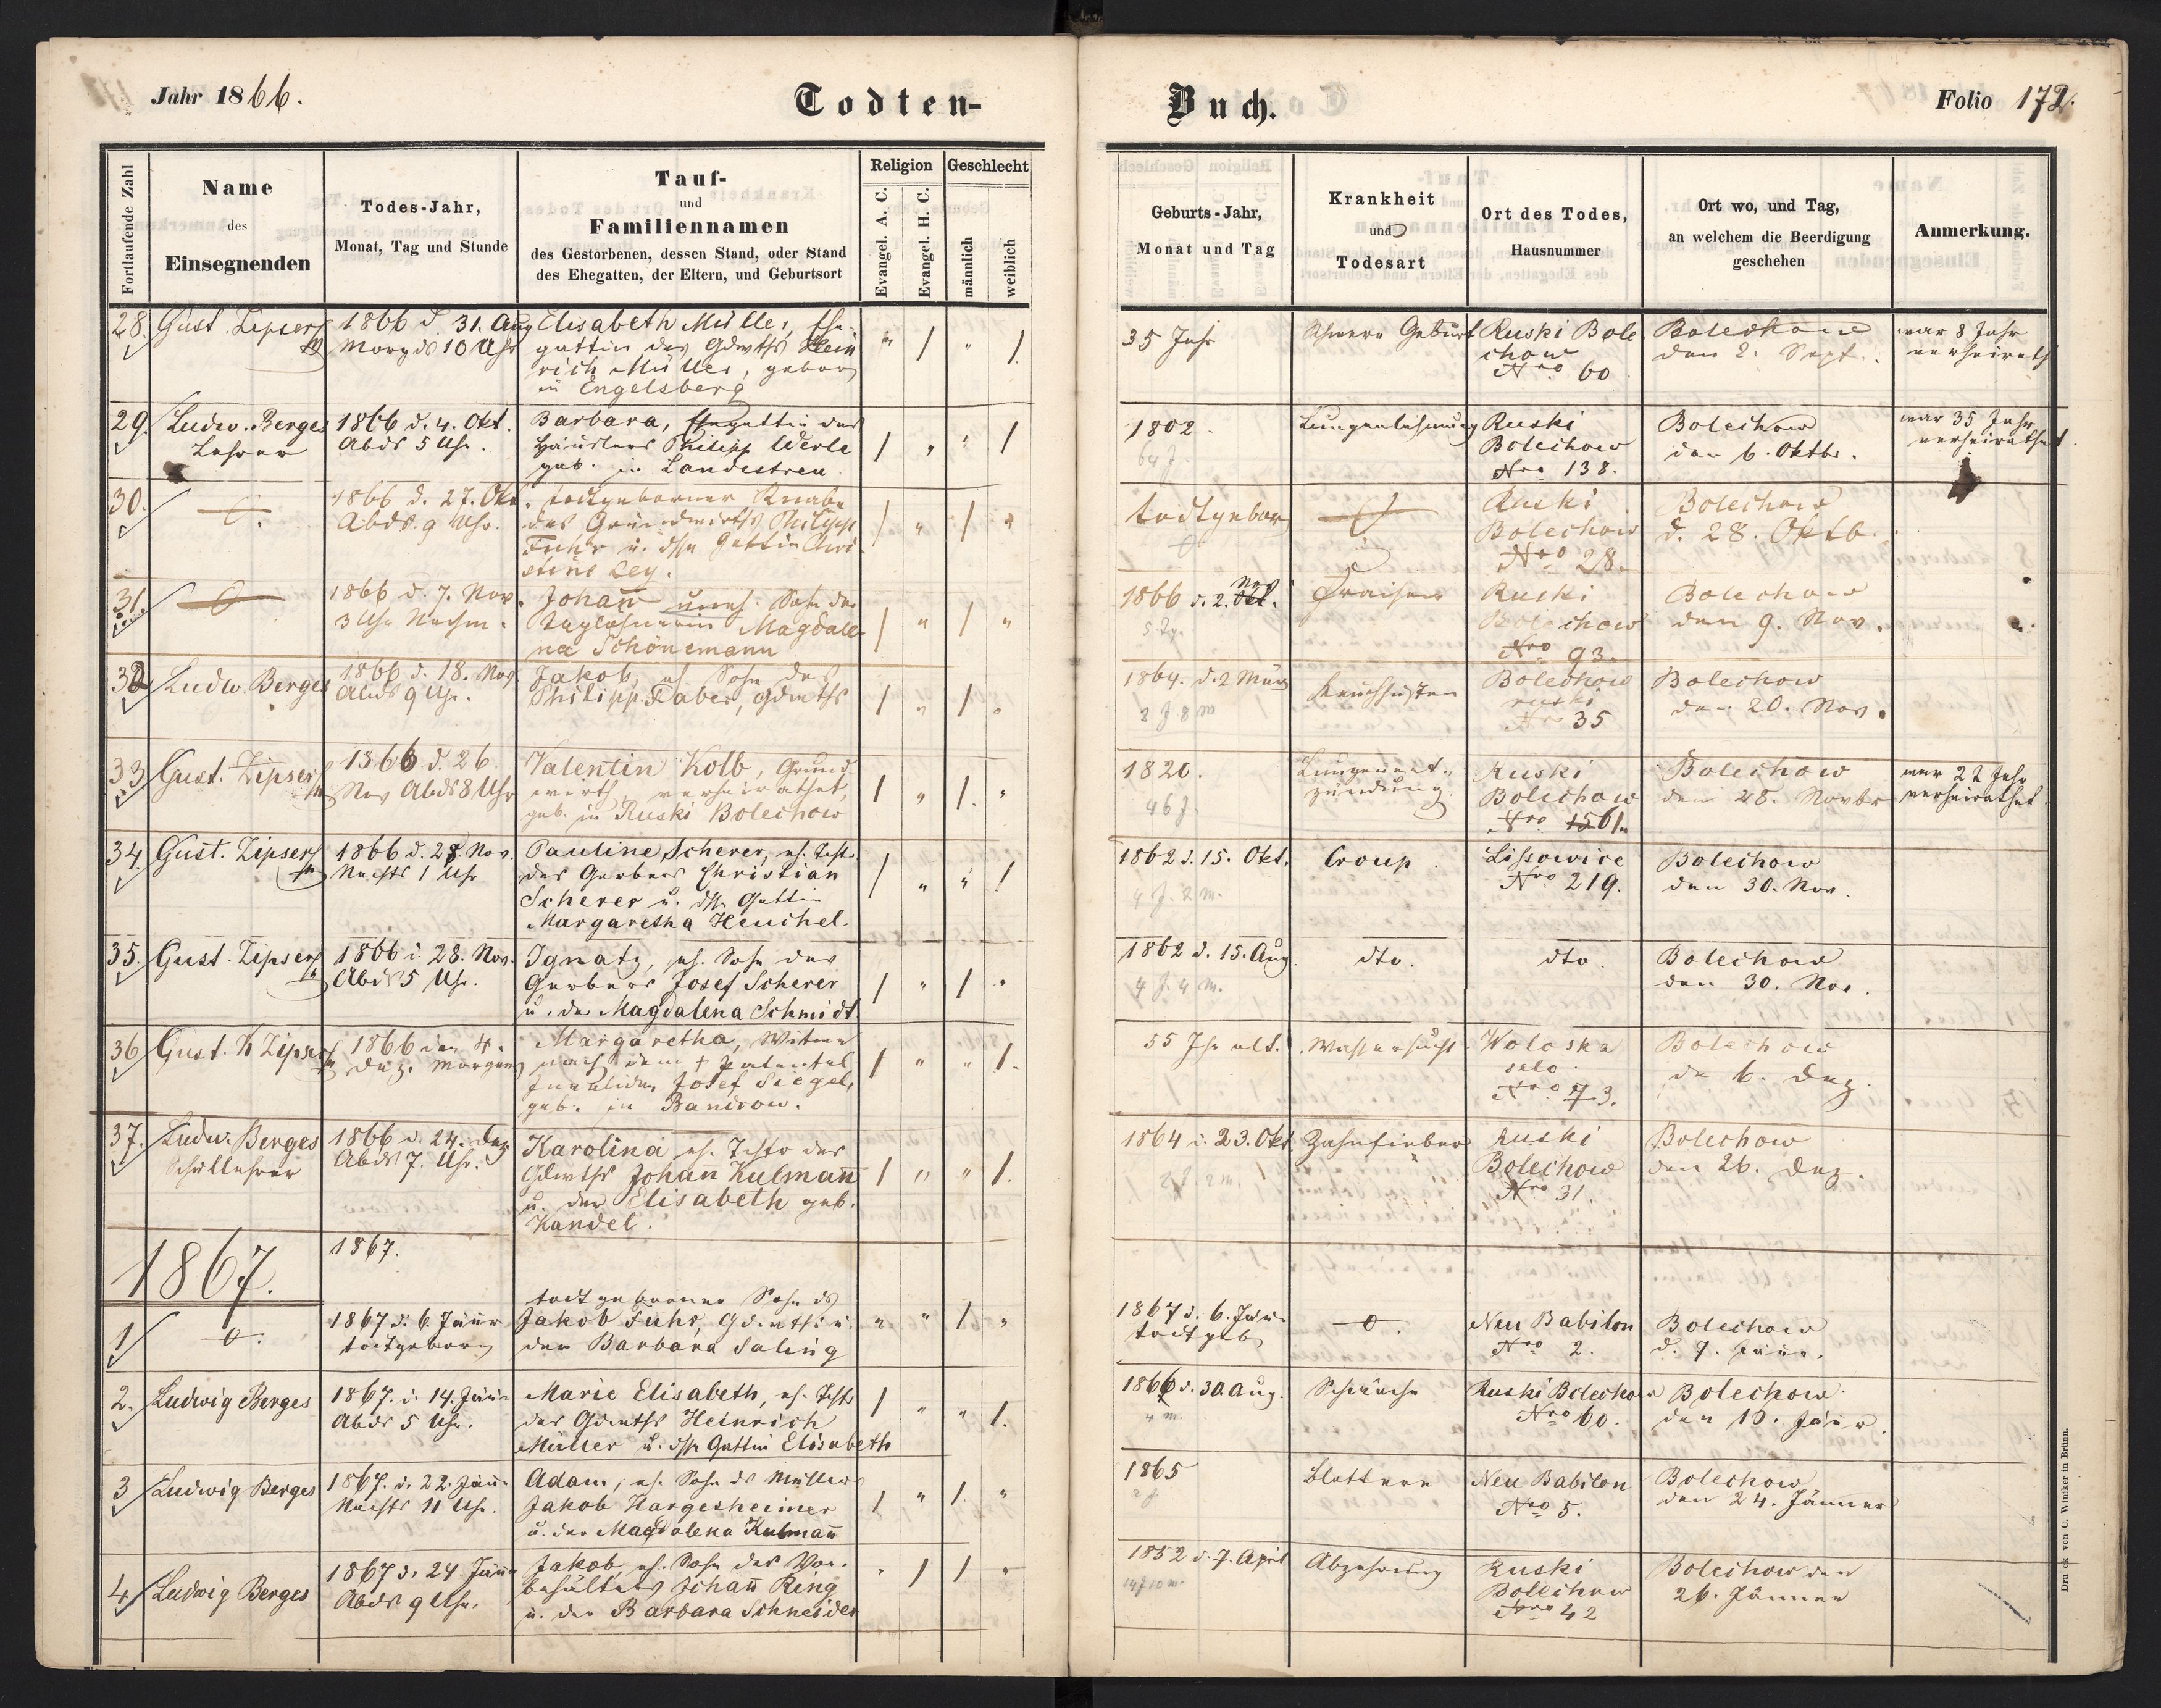 Jahr 1866.
Todten-
Buch.
Folio 172.
Fortlaufende Zahl
Name
des
Einsegnenden
Todes-Jahr,
Monat, Tag und Stunde
Tauf-
und
Familiennamen
des Gestorbenen, dessen Stand, oder Stand
des Ehegatten, der Eltern, und Geburtsort
Religion
Evangel. A. C.
Evangel. H. C.
Geschlecht
männlich
weiblich
Geburts-Jahr,
Monat und Tag
Krankheit
und
Todesart
Ort des Todes,
Hausnummer
Ort wo, und Tag,
an welchem die Beerdigung
geschehen
Anmerkung.
28. Gust. Zipser
1866 d. 31. Aug
Morgds 10 Uhr
Elisabeth Müller, Ehe-
gattin des Gdwths Hein
rich Müller, geboren
in Engelsberg
" / " /
35 Jahr
Schwere Geburt
Ruski Bole
chow
Nro 60
Bolechow
den 2. Sept.
war 8 Jahr
verheirath
29. Ludw. Berges
Lehrer
1866 d. 4. Okt.
Abds 5 Uhr.
Barbara, Ehegattin des
Häuslers Philipp Werle
geb. in Landestreu
/ " " /
1802.
64 J.
Lungenlähmung
Ruski
Bolechow
Nro 138.
Bolechow
den 6. Oktbr.
war 35 Jahr
verheirathet.
30.
1866 d. 27. Okt.
Abds. 9 Uhr.
todtgeborner Knabe
des Grundwirths Philipp
Fuhr u. dssn Gattin Chri
stine Ley.
/ " / "
todtgebor
Ruski
Bolechow
Nro 28.
Bolechow
d. 28. Oktb.
31.
1866 d. 7. Nov.
3 Uhr Nachm.
Johann uneh. Sohn der
Taglöhnerin Magdale
na Schönemann
/ " / "
1866 d. 2. Nov
5 Tg.
Fraisen
Ruski
Bolechow
Nro 93.
Bolechow
den 9. Nov.
32 Ludw. Berges
1866 d. 18. Nov
Abds 9 Uhr.
Jakob, eh. Sohn des
Philipp Faber, Gdwths
/ " / "
1864. d. 2 März
2 J. 8 m
Keuchhusten
Bolechow
ruski
Nro 35
Bolechow
den 20. Nov.
33 Gust. Zipser
1866 d. 26.
Nov Abds 8 Uhr
Valentin Kolb, Grund
wirth, verheirathet,
geb. in Ruski Bolechow
/ " /. "
1820.
46 J.
Lungenent-
zündung
Ruski
Bolechow
Nro 61.
Bolechow
den 28. Novbr
war 22 Jahr
verheirathet.
34. Gust. Zipser
1866 d. 28. Nov.
Nachts 1 Uhr
Pauline Scherer, eh. Tcht.
des Gerbers Christian
Scherer u. dssn Gattin
Margaretha Heuchel.
/ " " /
1862 d. 15. Okt.
4 J. 2 m.
Croup.
Lissowice
Nro 219.
Bolechow
den 30. Nov.
35. Gust. Zipser
1866 d. 28. Nov.
Abds 5 Uhr.
Ignatz, eh. Sohn des
Gerbers Josef Scherer
u. der Magdalena Schmidt
/ " / "
1862 d. 15. Aug.
4 J. 4 m.
dto.
dto.
Bolechow
den 30. Nov.
36 Gust. Zipser
1866 den 4.
Dez. Morgens
Margaretha, Witwe
nach dem † Patental
Invaliden Josef Siegel,
geb. in Banirow.
/ " " /.
55 Jhr alt.
Wassersucht
Woloska
selo.
Nro 73.
Bolechow
de 6. Dez.
37. Ludw. Berges
Schullehrer
1866 d. 24. Dez
Abds 7. Uhr.
Karolina eh. Tchtr des
Gdwths Johann Kulmann
u. der Elisabeth geb.
Kandel.
/ " " /.
1864 d. 23. Okt.
2 J. 2 m.
Zahnfieber
Ruski
Bolechow
Nro 31.
Bolechow
den 26. Dez.
1867.
1867.
1
1867 d. 6. Jänr
todtgeboren
todtgeborner Sohn ds
Jakob Fuhr, Gdwths u.
der Barbara Saling
" " /. "
1867 d. 6. Jän.
todtgeb
Neu Babilon
Nro 2.
Bolechow
d. 7. Jänr.
2. Ludwig Berges
1867. d. 14. Jänn
Abds 5 Uhr.
Marie Elisabeth, eh. Tcht
des Gdwths Heinrich
Müller u. dssn Gattin Elisabeth
/ " " /.
1866 d. 30. Aug.
4 m.
Schwäche
Ruski Bolechow
Nro 60.
Bolechow.
den 15. Jänr.
3 Ludwig Berges
1867. d. 22. Jänn
Nachts 11 Uhr.
Adam, eh. Sohn ds Müllers
Jakob Hargesheimer
u. der Magdalena Kulmann
/ " /. "
1865
2 J.
Blattern
Neu Babilon
Nro 5.
Bolechow
den 24. Jänner
4 Ludwig Berges
1867 d. 24 Jänn
Abds 9 Uhr.
Jakob, eh. Sohn des Vor-
behälters Johann Ring
u. der Barbara Schneider
" / / "
1852 d. 7. April
14 J 10 m.
Abzehrung
Ruski
Bolechow
Nro 42
Bolechow den
26. Jänner
Druck von C. Winiker in Brünn.